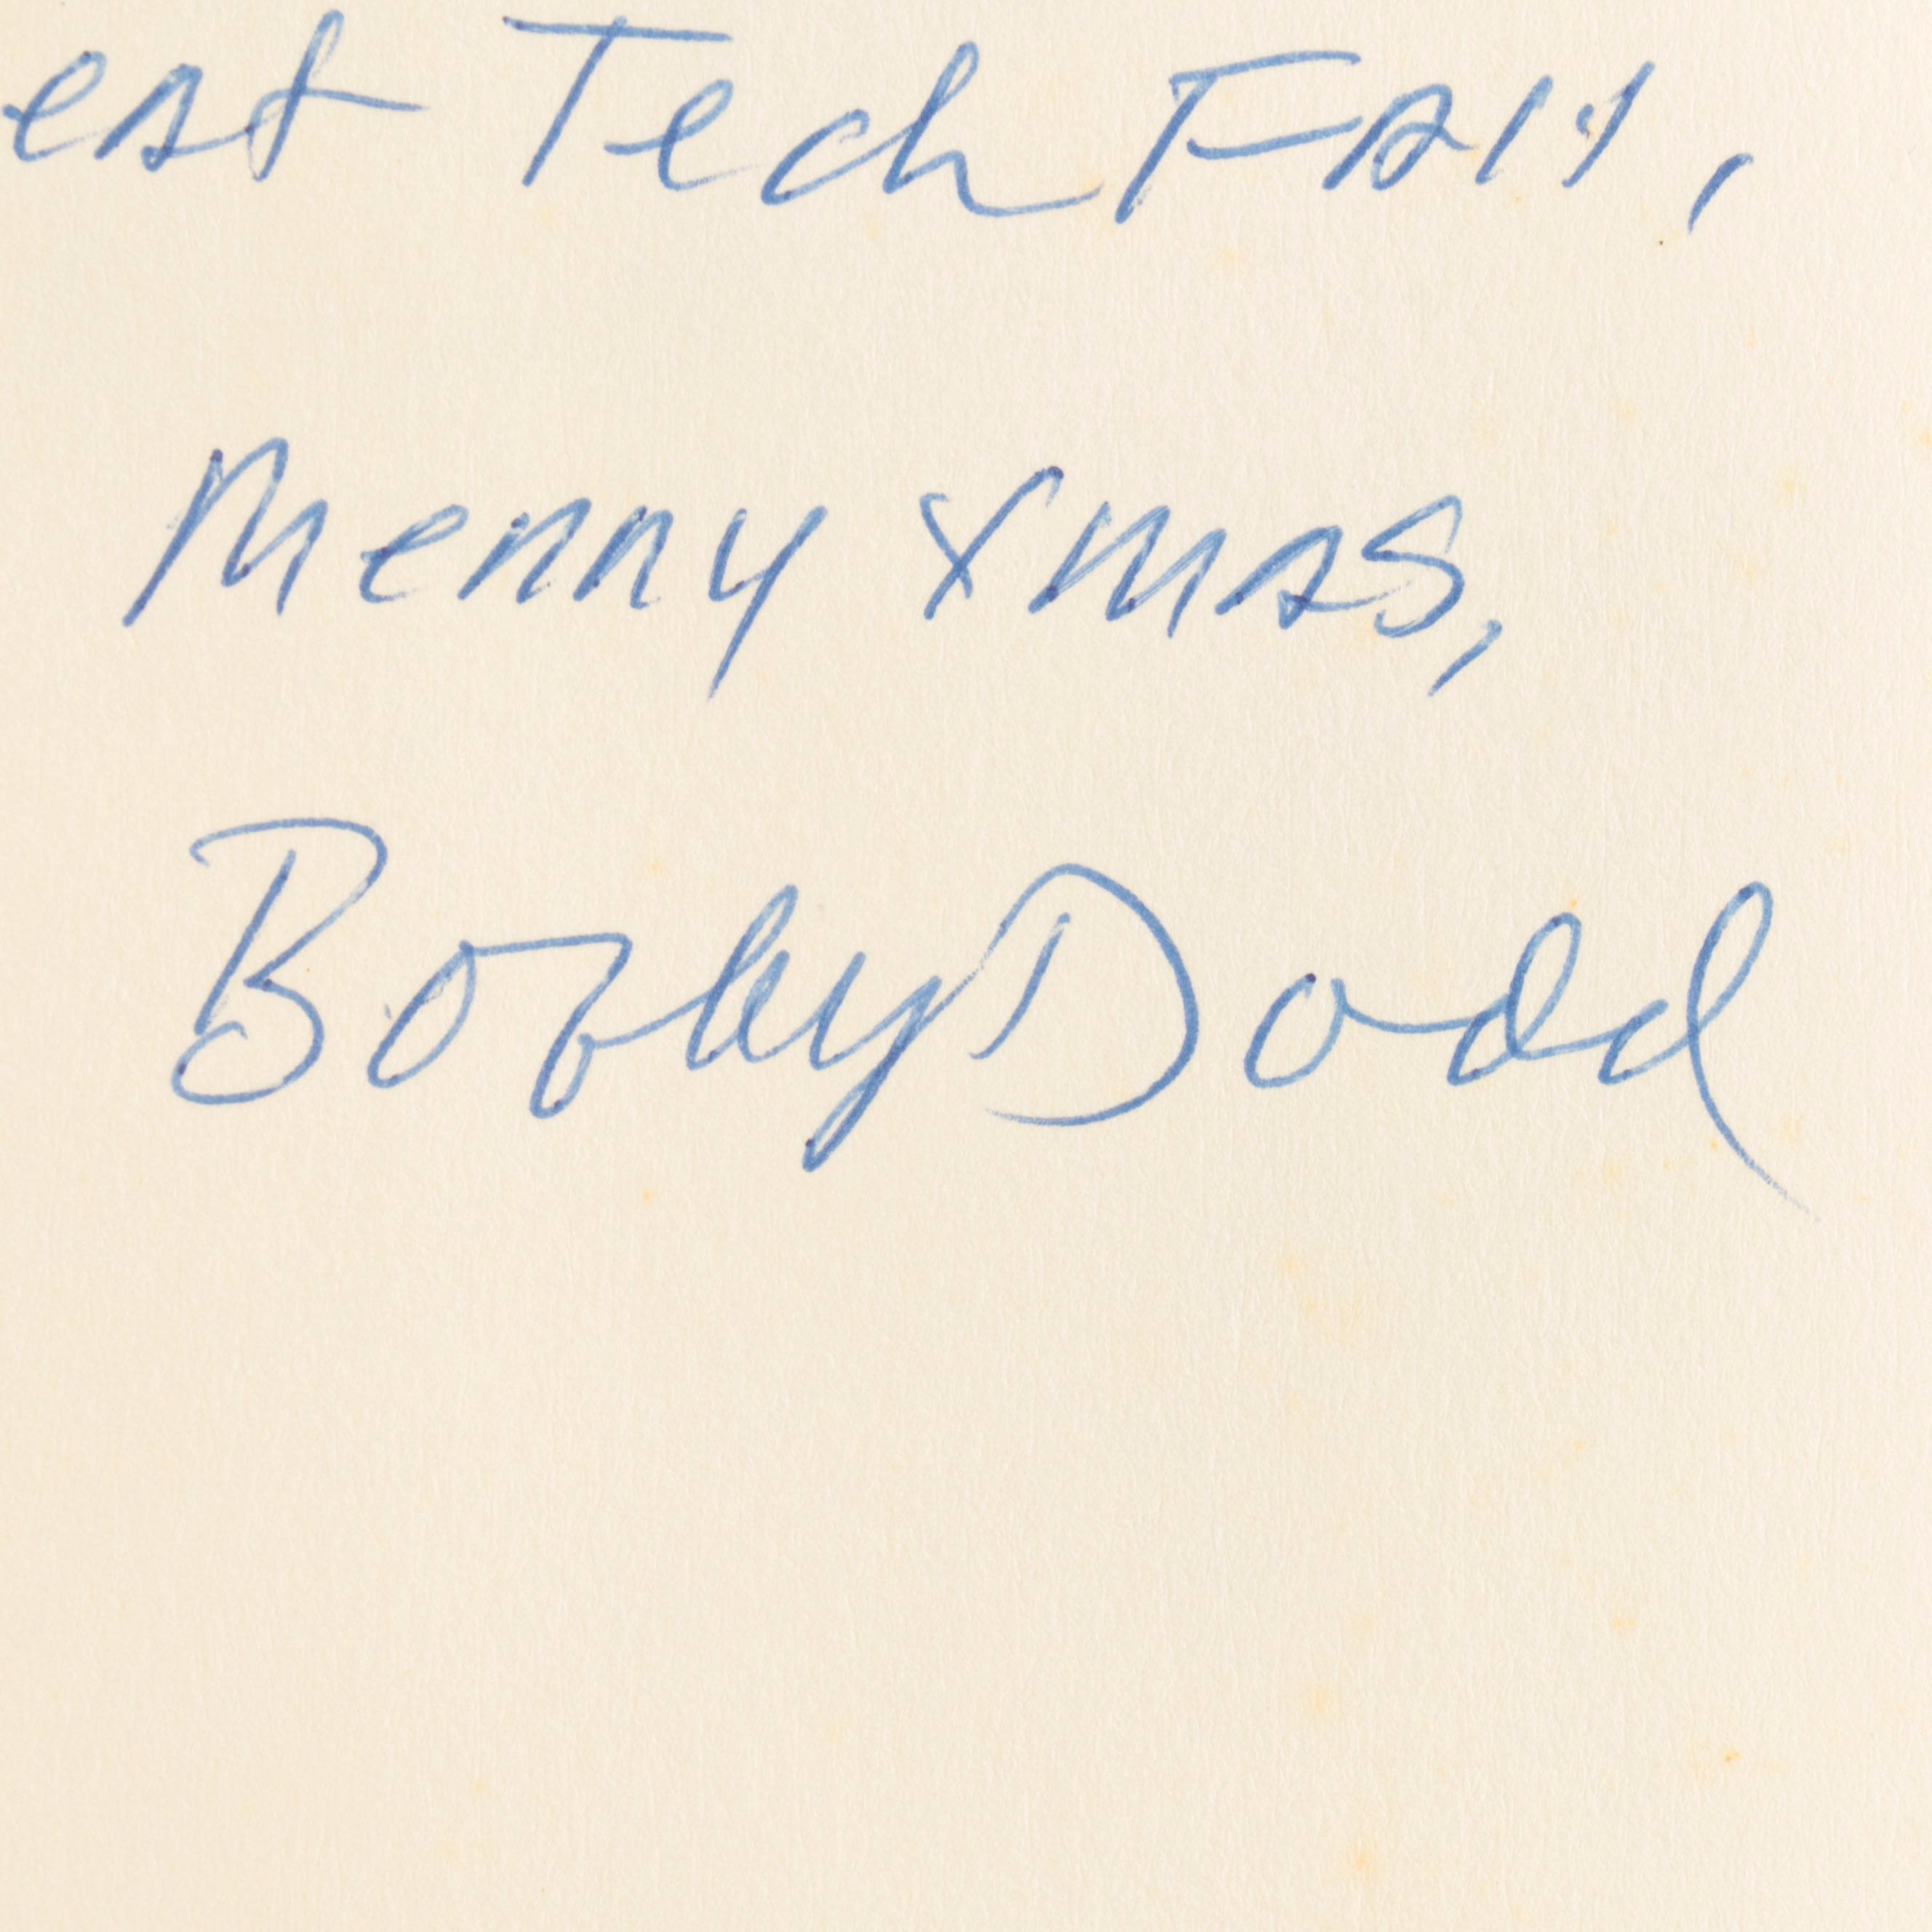 eat Tech FAN,
Merry Xmas,
Bobby Dodd